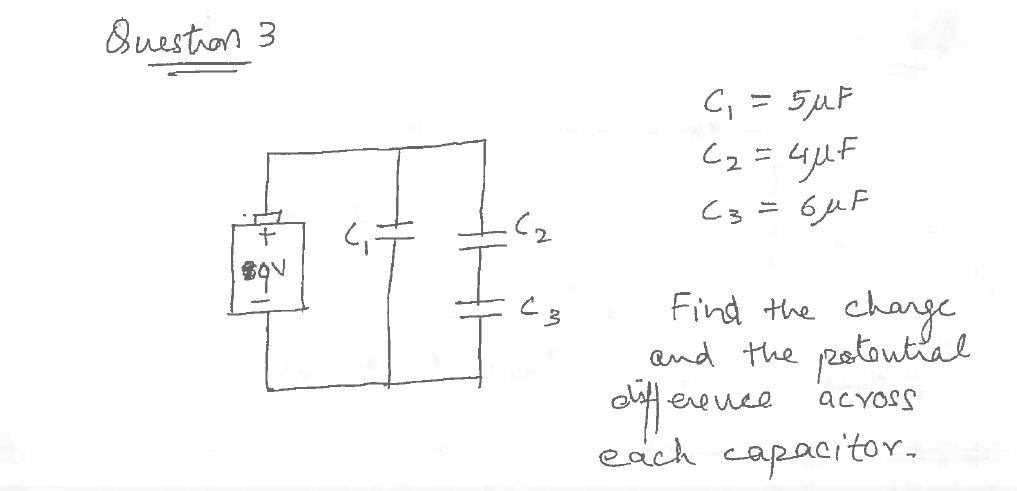 Question 3
C1 = 5μF
C2 = 4μF
C3 = 6μF
+
C1
C2
C3
−
Find the charge
and the potential
difference across
each capacitor.